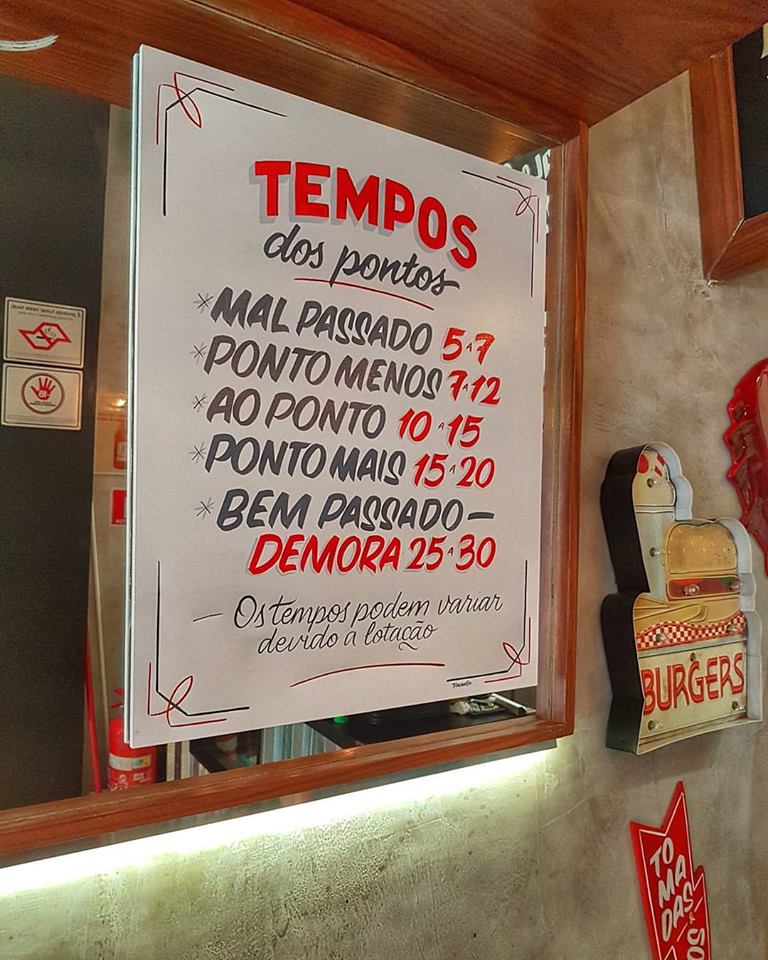 TEMPOS
dos pontos
*MAL PASSADO 5 A 7
*PONTO MENOS 7 A 12
*AO PONTO 10 A 15
*PONTO MAIS 15 A 20
*BEM PASSADO —
DEMORA 25 A 30
— Os tempos podem variar
devido a lotação
BURGERS
TO
MA
DAS